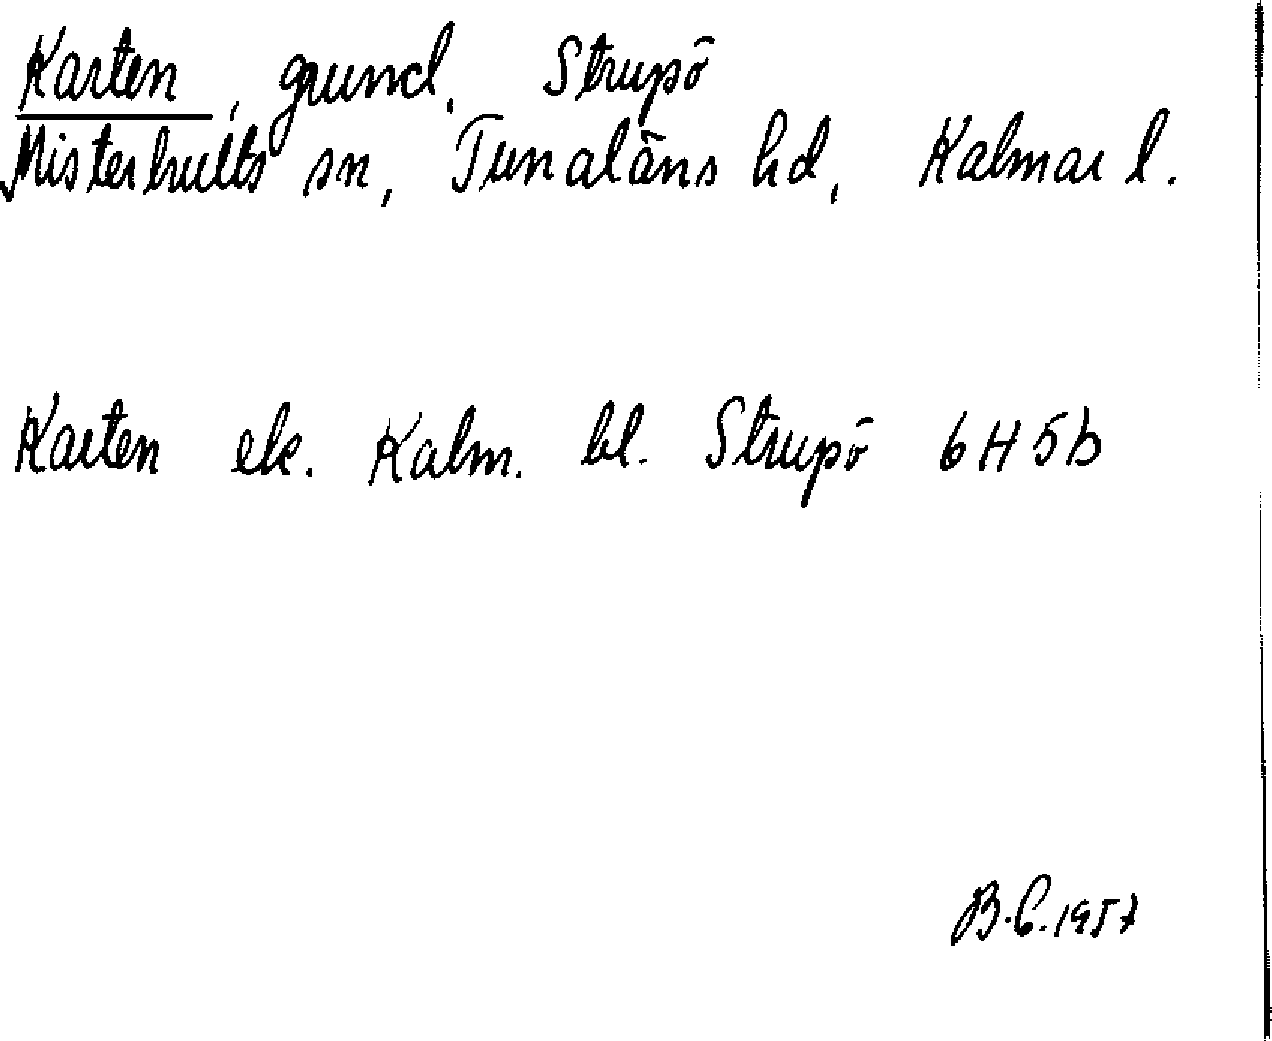 Karten, grund. Strupö
Misterhults sn, Tunaläns hd, Kalmar l.
Karten ek. Kalm. bl. Strupö 6H5b
B.C. 1957